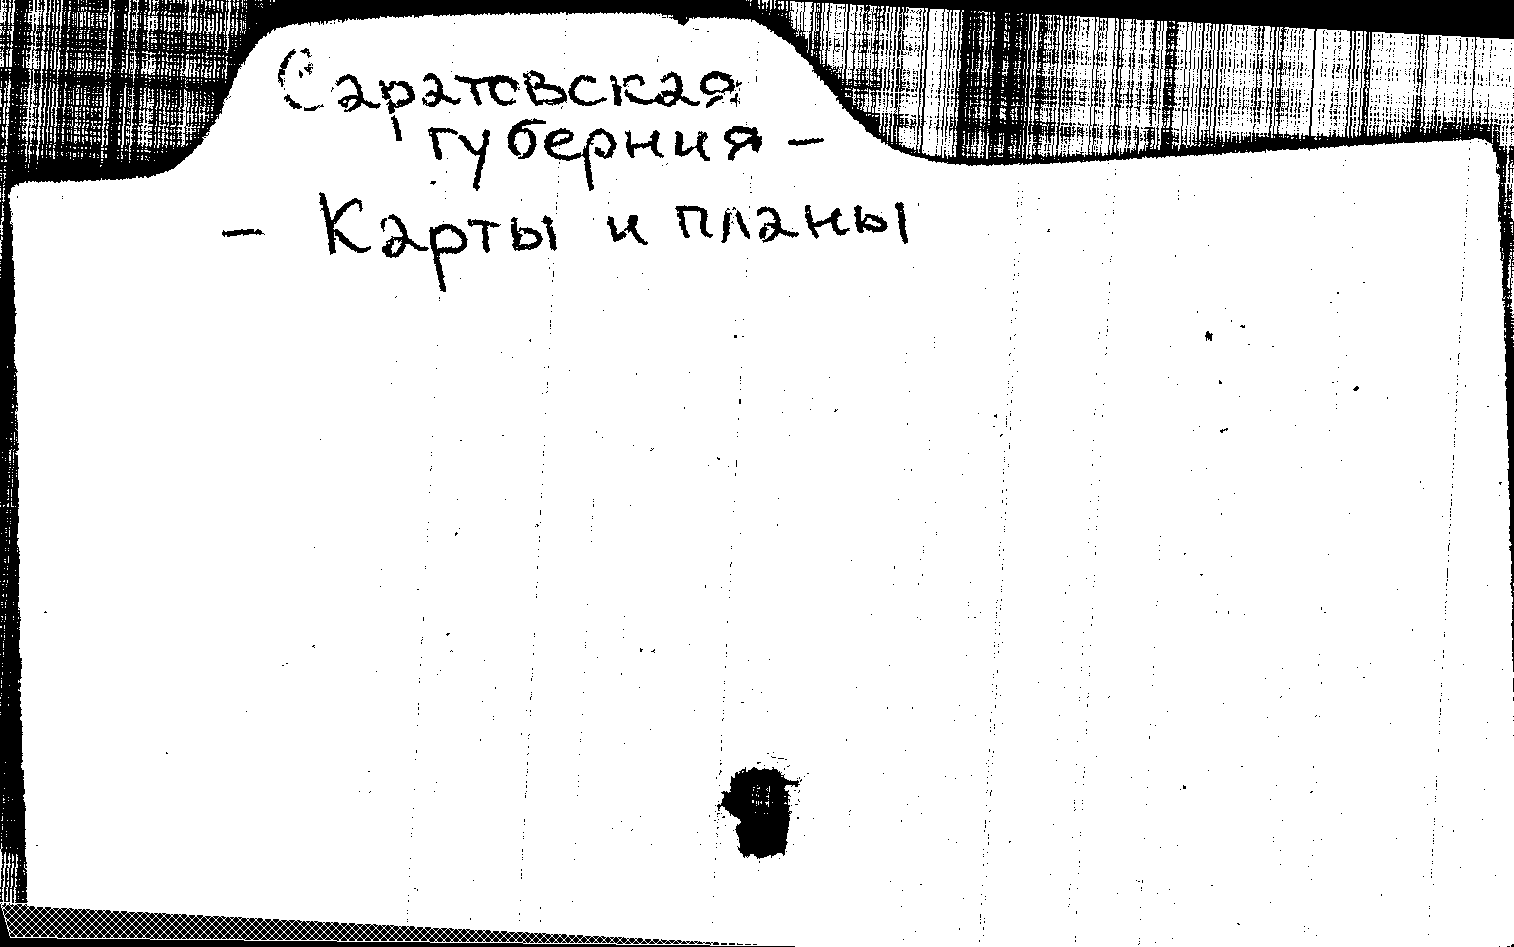 Саратовская
губерния –
– Карты и планы